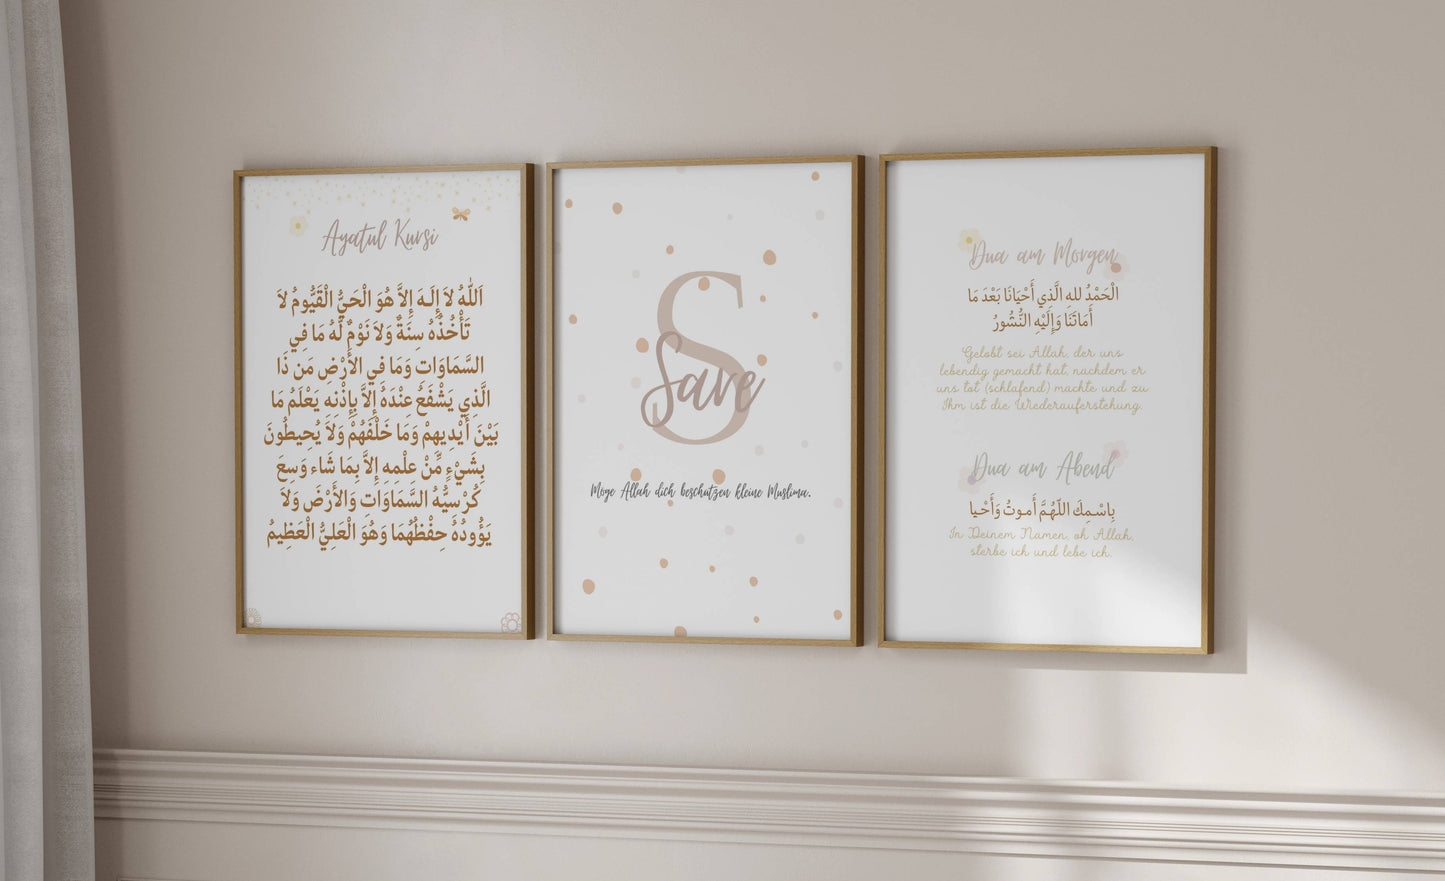 Ayatul Kursi
اَللّٰهُ لاَ إِلَـهَ إِلاَّ هُوَ الْحَيُّ الْقَيُّومُ لاَ
تَأْخُذُهُ سِنَةٌ وَلاَ نَوْمٌ لَّهُ مَا فِي
السَّمَاوَاتِ وَمَا فِي الأَرْضِ مَن ذَا
الَّذِي يَشْفَعُ عِنْدَهُ إِلاَّ بِإِذْنِهِ يَعْلَمُ مَا
بَيْنَ أَيْدِيهِمْ وَمَا خَلْفَهُمْ وَلاَ يُحِيطُونَ
بِشَيْءٍ مِّنْ عِلْمِهِ إِلاَّ بِمَا شَاء وَسِعَ
كُرْسِيُّهُ السَّمَاوَاتِ وَالأَرْضَ وَلاَ
يَؤُودُهُ حِفْظُهُمَا وَهُوَ الْعَلِيُّ الْعَظِيمُ
S
Save
Möge Allah dich beschützen kleine Muslima.
Dua am Morgen
الْحَمْدُ للهِ الَّذِي أَحْيَانَا بَعْدَ مَا
أَمَاتَنَا وَإِلَيْهِ النُّشُورُ
Gelobt sei Allah, der uns
lebendig gemacht hat, nachdem er
uns tot (schlafend) machte und zu
Ihm ist die Wiederauferstehung.
Dua am Abend
بِاسْمِكَ اللّهُمَّ أَموتُ وَأَحْيا
In Deinem Namen, oh Allah,
sterbe ich und lebe ich.